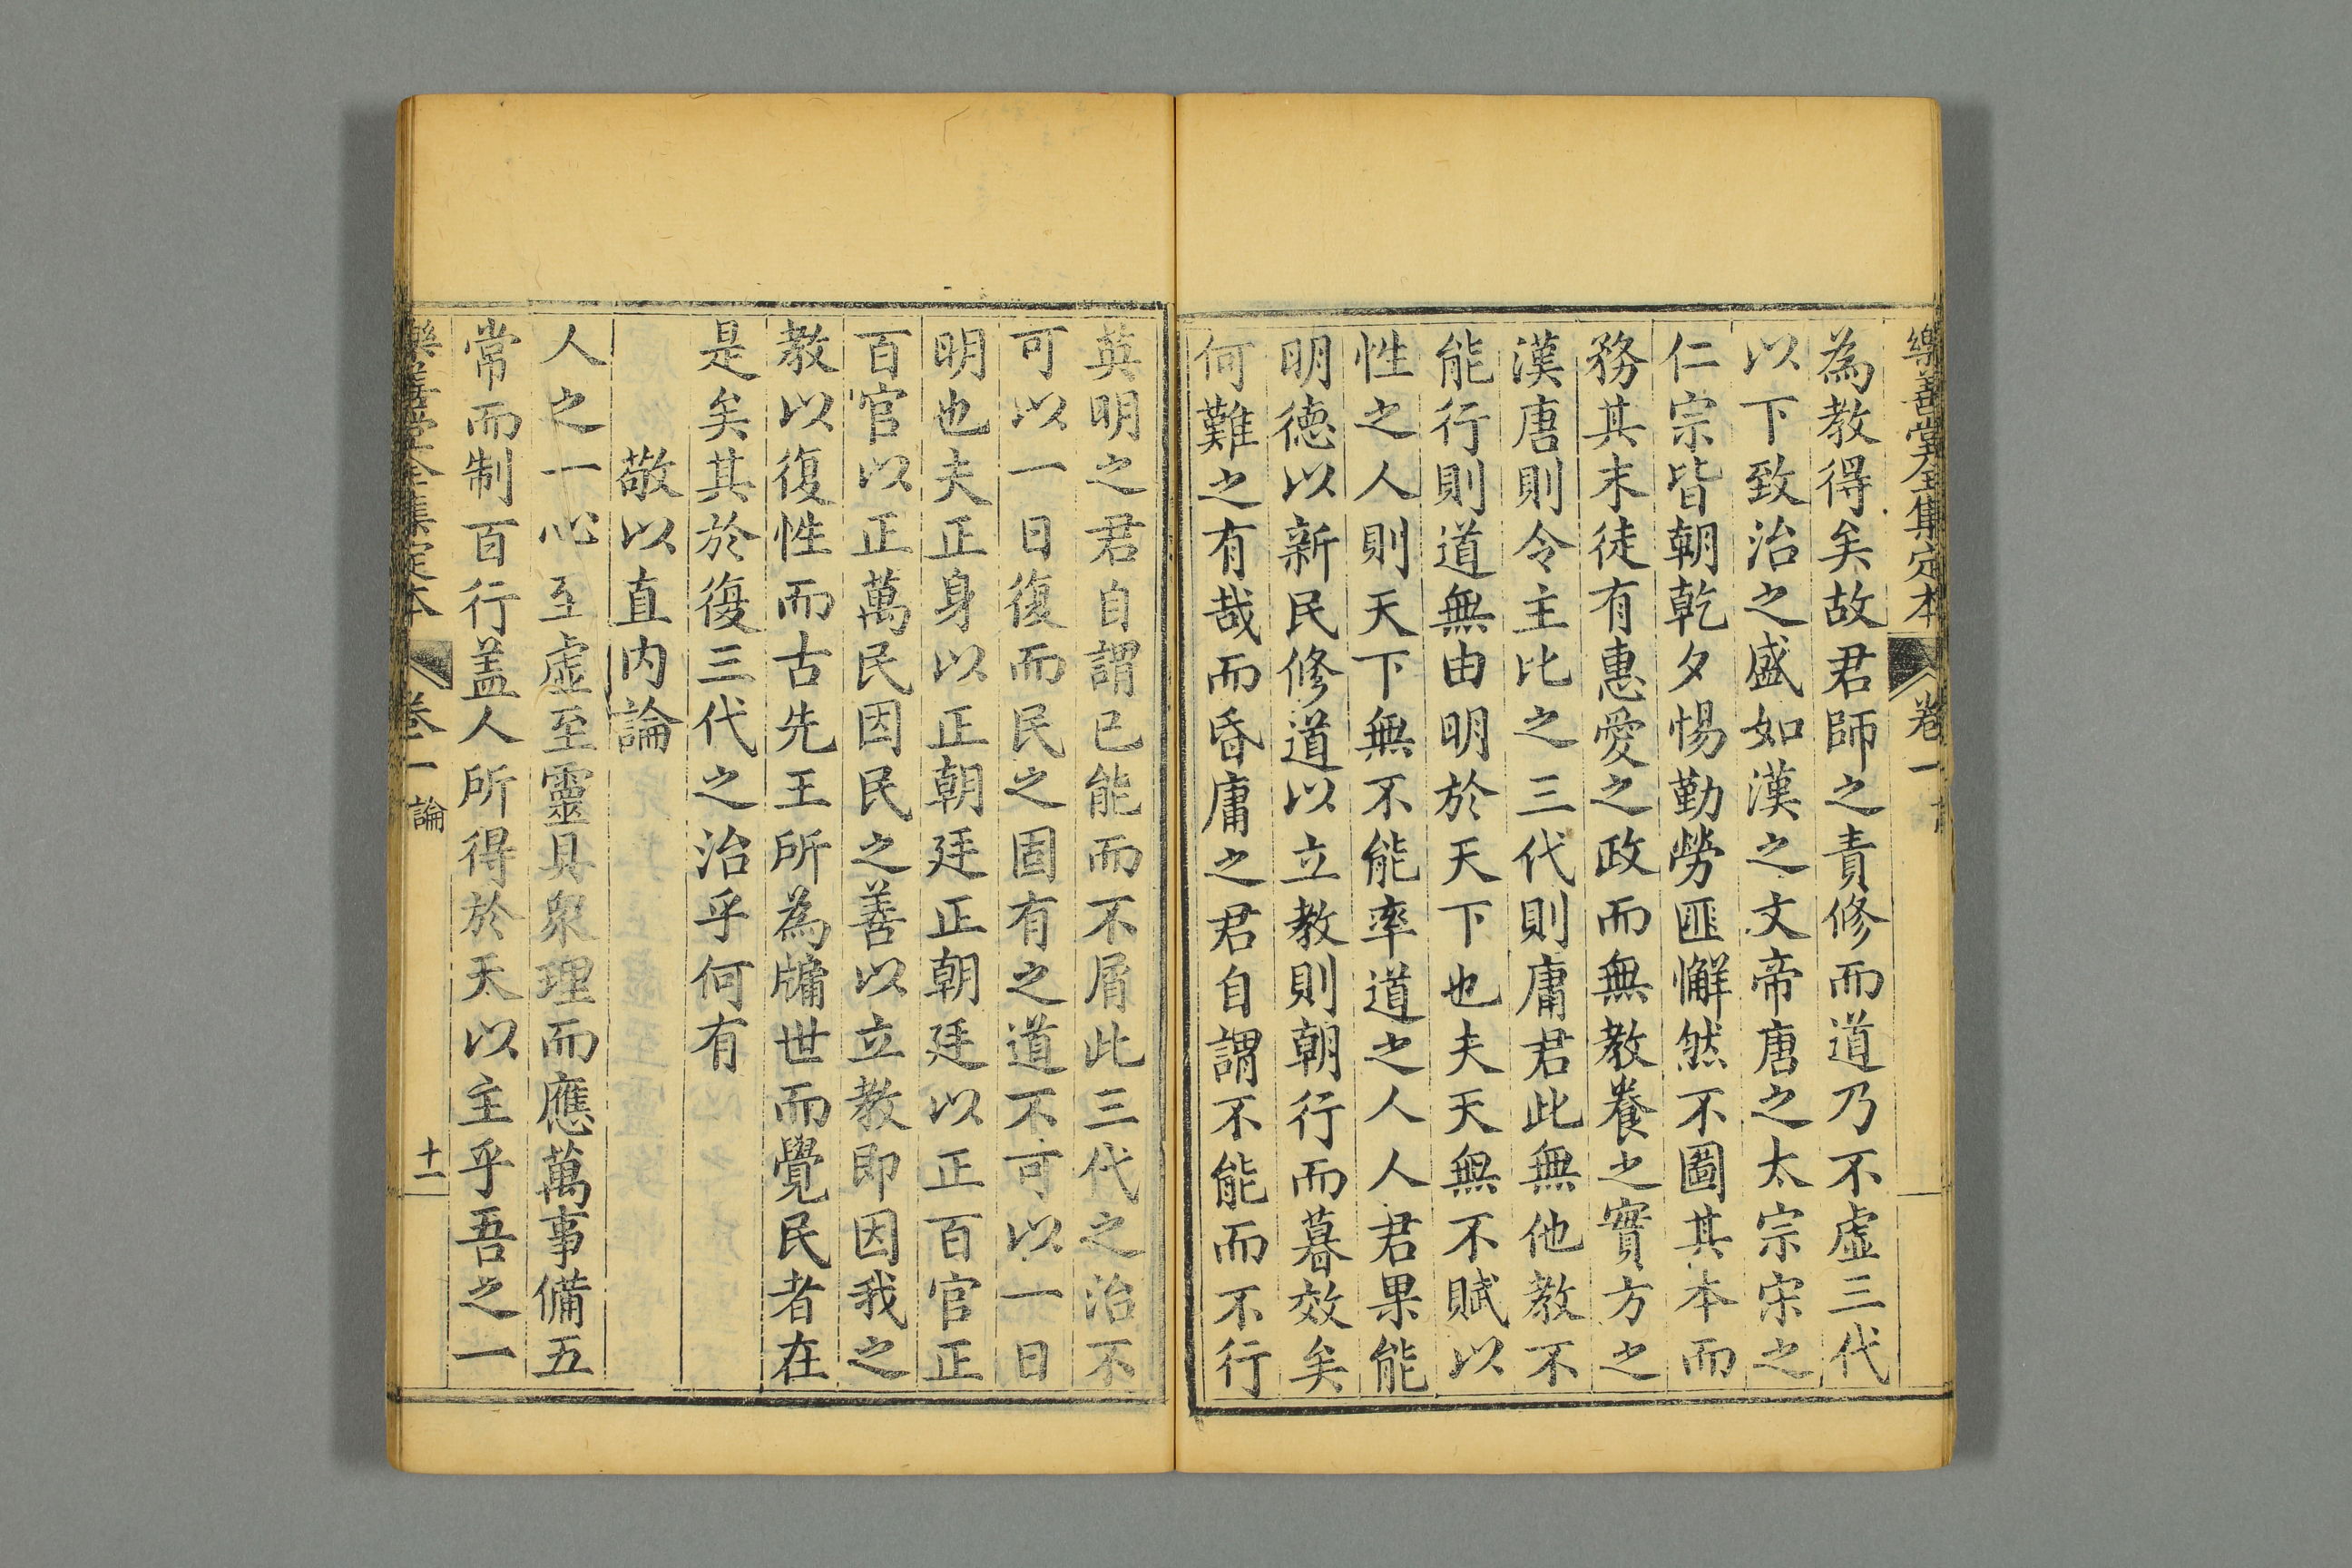 樂善堂全集定本 卷一
為教得矣故君師之責修而道乃不虛三代
以下致治之盛如漢之文帝唐之太宗宋之
仁宗皆朝乾夕惕勤勞匪懈然不圖其本而
務其末徒有惠愛之政而無教養之實方之
漢唐則令主比之三代則庸君此無他教不
能行則道無由明於天下也夫天無不賦以
性之人則天下無不能率道之人人君果能
明德以新民修道以立教則朝行而暮效矣
何難之有哉而昏庸之君自謂不能而不行
英明之君自謂已能而不屑此三代之治不
可以一日復而民之固有之道不可以一日
明也夫正身以正朝廷正朝廷以正百官正
百官以正萬民因民之善以立教即因我之
教以復性而古先王所為牖世而覺民者在
是矣其於復三代之治乎何有
敬以直内論
人之一心至虛至靈具衆理而應萬事備五
常而制百行盖人所得於天以主乎吾之一
樂善堂全集定本 卷一 論 十一